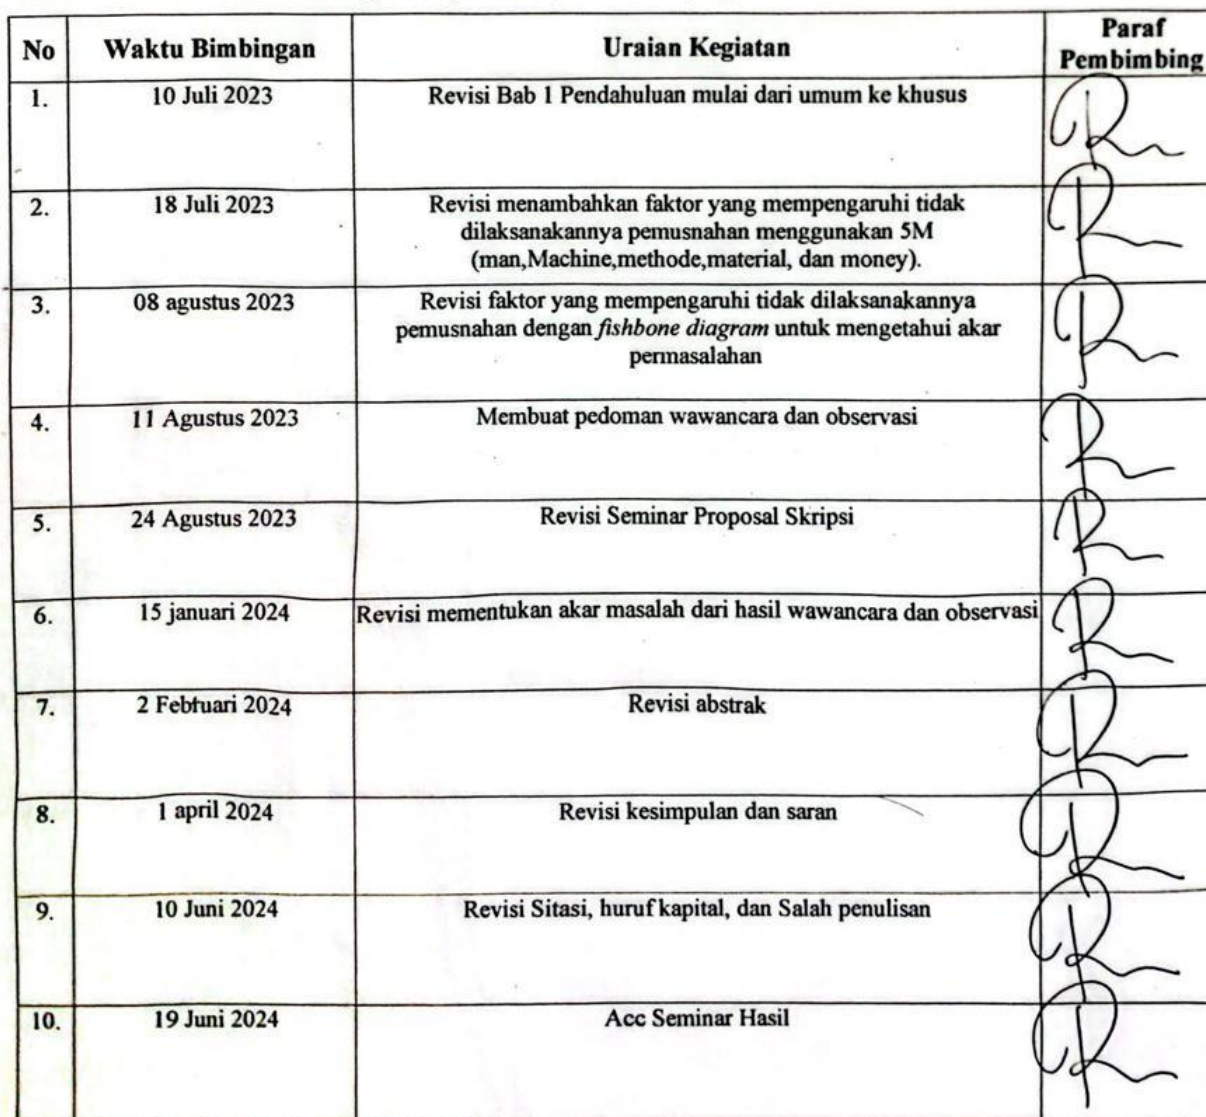 No Waktu Bimbingan Uraian Kegiatan Paraf
Pembimbing
1. 10 Juli 2023 Revisi Bab 1 Pendahuluan mulai dari umum ke khusus
2. 18 Juli 2023 Revisi menambahkan faktor yang mempengaruhi tidak
dilaksanakannya pemusnahan menggunakan 5M
(man,Machine,methode,material, dan money).
3. 08 agustus 2023 Revisi faktor yang mempengaruhi tidak dilaksanakannya
pemusnahan dengan fishbone diagram untuk mengetahui akar
permasalahan
4. 11 Agustus 2023 Membuat pedoman wawancara dan observasi
5. 24 Agustus 2023 Revisi Seminar Proposal Skripsi
6. 15 januari 2024 Revisi mementukan akar masalah dari hasil wawancara dan observasi
7. 2 Februari 2024 Revisi abstrak
8. 1 april 2024 Revisi kesimpulan dan saran
9. 10 Juni 2024 Revisi Sitasi, huruf kapital, dan Salah penulisan
10. 19 Juni 2024 Acc Seminar Hasil